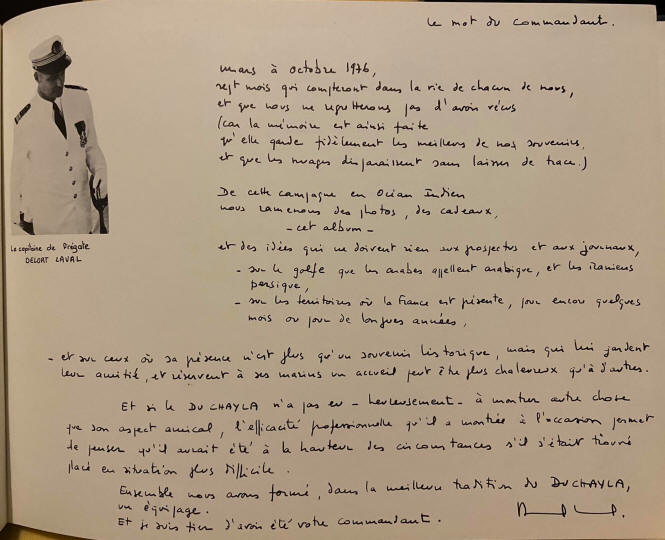 Le mot du commandant.
mars à octobre 1976,
sept mois qui compteront dans la vie de chacun de nous,
et que nous ne regretterons pas d'avoir vécus
(car la mémoire est ainsi faite
qu'elle garde fidèlement les meilleurs de nos souvenirs,
et que les nuages disparaissent sans laisser de trace.)
De cette campagne en Océan Indien
nous ramenons des photos, des cadeaux,
- cet album -
et des idées qui ne doivent rien aux prospectus et aux journaux,
- sur le golfe que les arabes appellent arabique, et les iraniens
persique,
- sur les territoires où la France est présente, pour encore quelques
mois ou pour de longues années,
- et sur ceux où sa présence n'est plus qu'un souvenir historique, mais qui lui gardent
leur amitié, et réservent à ses marins un accueil peut être plus chaleureux qu'à d'autres.
Et si le DU CHAYLA n'a pas eu - heureusement - à montrer autre chose
que son aspect amical, l'efficacité professionnelle qu'il a montrée à l'occasion permet
de penser qu'il aurait été à la hauteur des circonstances s'il s'était trouvé
placé en situation plus difficile.
Ensemble nous avons formé, dans la meilleure tradition du DU CHAYLA,
un équipage.
Et je suis fier d'avoir été votre commandant.
Le capitaine de frégate
DELORT LAVAL